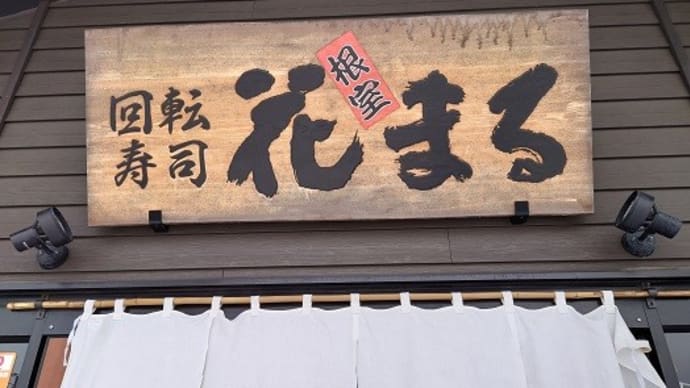 回転
寿司
花まる
根室